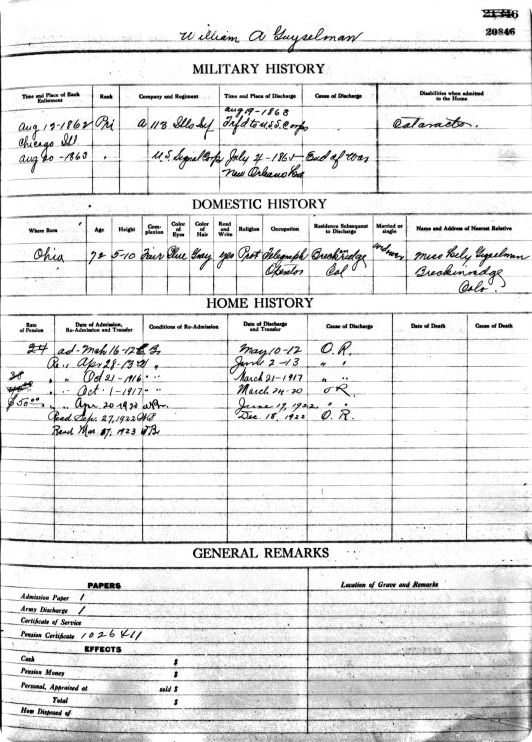 21346
20846
William A Guyselman
MILITARY HISTORY
Time and Place of Each Enlistment Rank Company and Regiment Time and Place of Discharge Cause of Discharge Disabilities when admitted to the Home
Aug 12-1862 Pri A 113 Ills Inf Aug 19-1863 Trfd to U.S.S. Corps Cataracts.
Chicago Ill.
Aug 20-1863 " U.S. Signal Corps July 4-1865 End of War
New Orleans La
DOMESTIC HISTORY
Where Born Age Height Complexion Color of Eyes Color of Hair Read and Write Religion Occupation Residence Subsequent to Discharge Married or single Name and Address of Nearest Relative
Ohio 72 5-10 Fair Blue Gray yes Prot Telegraph Operator Breckridge Col widower Miss Guyselman
Breckinridge
Colo.
HOME HISTORY
Rate of Pension Date of Admission, Re-Admission and Transfer Conditions of Re-Admission Date of Discharge and Transfer Cause of Discharge Date of Death Cause of Death
24 ad- Mch 16-12 May 10-12 O.R.
Re " Apr 28-13 " June 2-13 " "
" " Oct 21-1916 " " March 21-1917 " "
" " Oct. 1-1917 " " March 24-20 O.R.
$50.00 " " Apr. 20-1920 June 17, 1922 " "
Read Sep. 27, 1922 Dec. 18, 1922 O.R.
Read Mar 17, 1923
GENERAL REMARKS
PAPERS Location of Grave and Remarks
Admission Paper 1
Army Discharge 1
Certificate of Service
Pension Certificate 1026411
EFFECTS
Cash $
Pension Money $
Personal, Appraised at sold $
Total $
How Disposed of